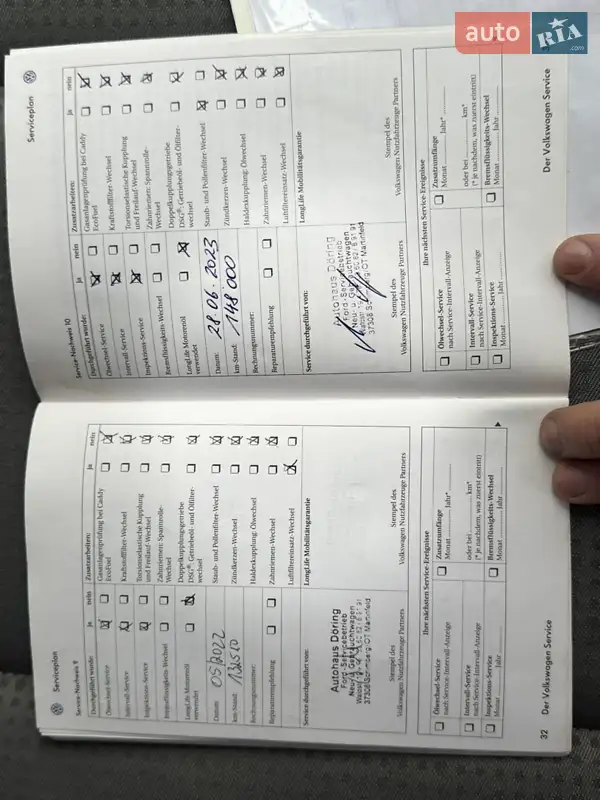 auto RIA .com
Serviceplan
Service-Nachweis 9
ja nein
Durchgeführt wurde:
Ölwechsel-Service
Intervall-Service
Inspektions-Service
Bremsflüssigkeits-Wechsel
LongLife Motorenöl
verwendet
Datum: 05/2022
Km-Stand:
Rechnungsnummer:
Reparaturempfehlung
Zusatzarbeiten:
ja nein
Gasanlagenprüfung bei Caddy
EcoFuel
Kraftstofffilter-Wechsel
Torsionselastische Kupplung
und Freilauf-Wechsel
Zahnriemen: Spannrolle-
Wechsel
Doppelkupplungsgetriebe
DSG®: Getriebeöl- und Ölfilter-
wechsel
Staub- und Pollenfilter-Wechsel
Zündkerzen-Wechsel
Haldexkupplung: Ölwechsel
Zahnriemen-Wechsel
Luftfiltereinsatz-Wechsel
Service durchgeführt von:
LongLife Mobilitätsgarantie
Autohaus Döring
Ford-Servicebetrieb
Neu- u. Gebrauchtwagen
Stempel des
Volkswagen Nutzfahrzeuge Partners
Stempel des
Volkswagen Nutzfahrzeuge Partners
Ihre nächsten Service-Ereignisse
Ölwechsel-Service
nach Service-Intervall-Anzeige
Intervall-Service
nach Service-Intervall-Anzeige
Inspektions-Service
Monat Jahr
Zusatzumfänge
Monat Jahr*
oder bei km*
(* je nachdem, was zuerst eintritt)
Bremsflüssigkeits-Wechsel
Monat Jahr
32 Der Volkswagen Service
Serviceplan
Service-Nachweis 10
ja nein
Durchgeführt wurde:
Ölwechsel-Service
Intervall-Service
Inspektions-Service
Bremsflüssigkeits-Wechsel
LongLife Motorenöl
verwendet
Datum: 28.06.2023
Km-Stand: 148 000
Rechnungsnummer:
Reparaturempfehlung
Zusatzarbeiten:
ja nein
Gasanlagenprüfung bei Caddy
EcoFuel
Kraftstofffilter-Wechsel
Torsionselastische Kupplung
und Freilauf-Wechsel
Zahnriemen: Spannrolle-
Wechsel
Doppelkupplungsgetriebe
DSG®: Getriebeöl- und Ölfilter-
wechsel
Staub- und Pollenfilter-Wechsel
Zündkerzen-Wechsel
Haldexkupplung: Ölwechsel
Zahnriemen-Wechsel
Luftfiltereinsatz-Wechsel
Service durchgeführt von:
LongLife Mobilitätsgarantie
Autohaus Döring
Ford-Servicebetrieb
Neu- u. Gebrauchtwagen
Stempel des
Volkswagen Nutzfahrzeuge Partners
Stempel des
Volkswagen Nutzfahrzeuge Partners
Ihre nächsten Service-Ereignisse
Ölwechsel-Service
nach Service-Intervall-Anzeige
Intervall-Service
nach Service-Intervall-Anzeige
Inspektions-Service
Monat Jahr
Zusatzumfänge
Monat Jahr*
oder bei km*
(* je nachdem, was zuerst eintritt)
Bremsflüssigkeits-Wechsel
Monat Jahr
Der Volkswagen Service